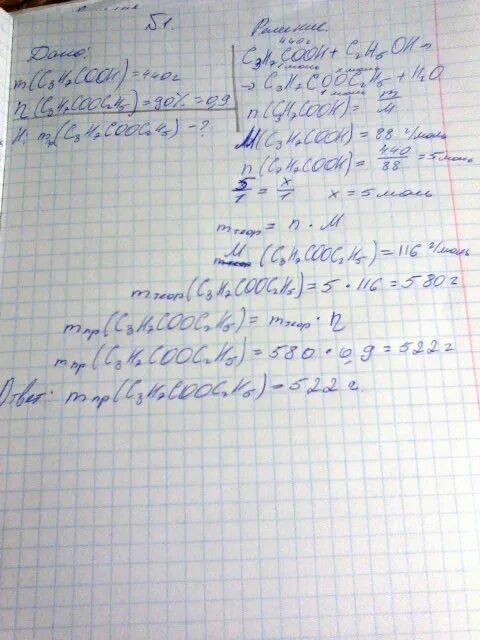 Б1.
Дано:
m(C₃H₇COOH)=440г
η(C₃H₇COOC₂H₅)=90%=0,9
Н: m(C₃H₇COOC₂H₅) - ?
Решение.
440г
C₃H₇COOH + C₂H₅OH →
1 моль
→ C₃H₇COOC₂H₅ + H₂O
1 моль
n(C₃H₇COOH) = m/M
M(C₃H₇COOH) = 88 г/моль
n(C₃H₇COOH) = 440/88 = 5 моль
5/1 = x/1 x = 5 моль
m теор = n · M
M (C₃H₇COOC₂H₅) = 116 г/моль
m теор (C₃H₇COOC₂H₅) = 5 · 116 = 580 г
m пр (C₃H₇COOC₂H₅) = m теор · η
m пр (C₃H₇COOC₂H₅) = 580 · 0,9 = 522 г
Ответ: m пр (C₃H₇COOC₂H₅) = 522 г.